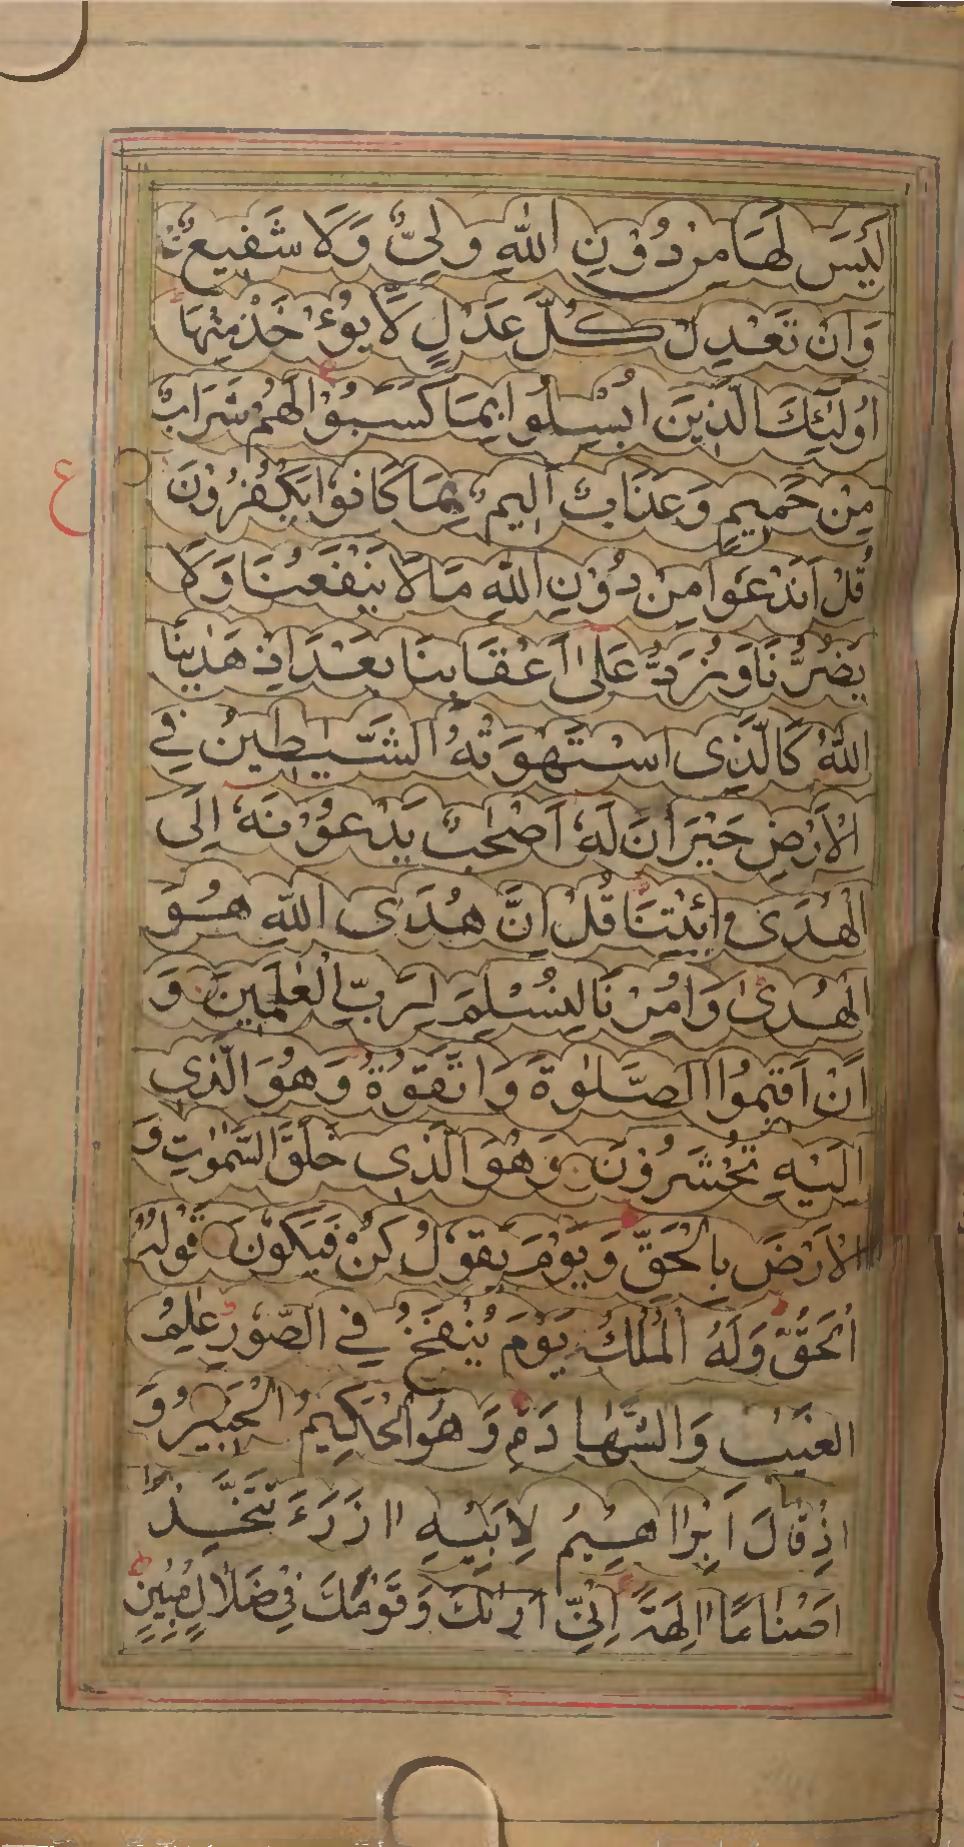 لَيْسَ لَهَا مِنْ دُوْنِ اللّٰهِ وَلِيٌّ وَّلَا شَفِيْعٌ
وَاِنْ تَعْدِلْ كُلَّ عَدْلٍ لَّا يُوْءْخَذْ مِنْهَا
اُولٰٓئِكَ الَّذِيْنَ اُبْسِلُوْا بِمَا كَسَبُوْا لَهُمْ شَرَابٌ
مِنْ حَمِيْمٍ وَعَذَابٌ اَلِيْمٌ بِمَا كَانُوْا يَكْفُرُوْنَ
ع
قُلْ اَنَدْعُوْا مِنْ دُوْنِ اللّٰهِ مَا لَا يَنْفَعُنَا وَلَا
يَضُرُّنَا وَنُرَدُّ عَلٰى اَعْقَابِنَا بَعْدَ اِذْ هَدٰىنَا
اللّٰهُ كَالَّذِى اسْتَهْوَتْهُ الشَّيٰطِيْنُ فِى
الْاَرْضِ حَيْرَانَ لَهٗ اَصْحٰبٌ يَدْعُوْنَهٗ اِلَى
الْهُدَى ائْتِنَا قُلْ اِنَّ هُدَى اللّٰهِ هُوَ
الْهُدٰى وَاُمِرْنَا لِنُسْلِمَ لِرَبِّ الْعٰلَمِيْنَ وَ
اَنْ اَقِيْمُوا الصَّلٰوةَ وَاتَّقُوْهُ وَهُوَ الَّذِى
اِلَيْهِ تُحْشَرُوْنَ وَهُوَ الَّذِى خَلَقَ السَّمٰوٰتِ وَ
الْاَرْضَ بِالْحَقِّ وَيَوْمَ يَقُوْلُ كُنْ فَيَكُوْنُ قَوْلُهُ
الْحَقُّ وَلَهُ الْمُلْكُ يَوْمَ يُنْفَخُ فِى الصُّوْرِ عٰلِمُ
الْغَيْبِ وَالشَّهَادَةِ وَهُوَ الْحَكِيْمُ الْخَبِيْرُ وَ
اِذْ قَالَ اِبْرَاهِيْمُ لِاَبِيْهِ اٰزَرَ ءَ تَتَّخِذُ
اَصْنَامًا اٰلِهَةً اِنِّىْ اَرٰىكَ وَقَوْمَكَ فِىْ ضَلَالٍ مُّبِيْنٍ